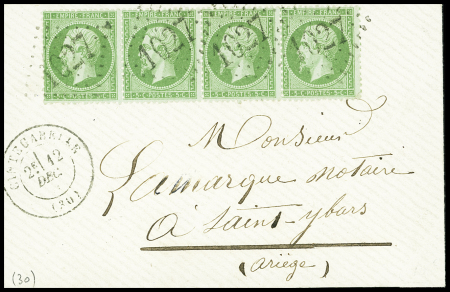 EMPIRE FRANC. EMPIRE FRANC. EMPIRE FRANC. EMPIRE FRANC.
1027 1027 1027 1027
5 C. POSTES 5 C. 5 C. POSTES 5 C. 5 C. POSTES 5 C. 5 C. POSTES 5 C.
2E 12
DEC
(30)
Monsieur
Lamarque notaire
à Saint-Ybars
(ariège)
(30)